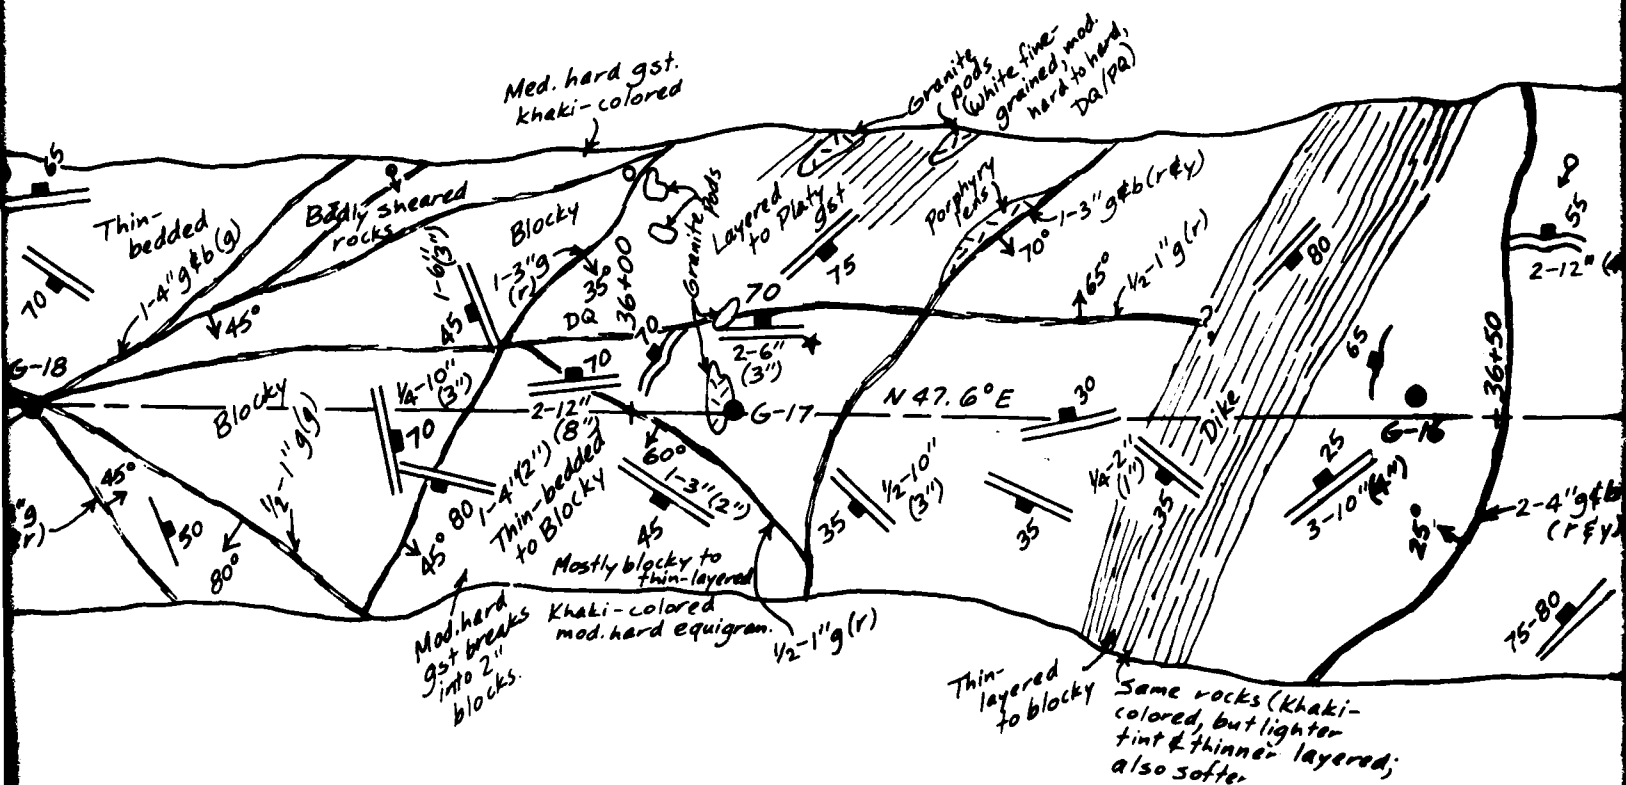 Med. hard gst.
khaki-colored
Granite
pods
(white fine-
grained, mod.
hard to hard,
DQ/PQ)
65
Thin-
bedded
Badly sheared
rocks
Blocky
Granite Pods
Layered
to Platy
gst
75
Porphyry
lens
1-3" g&b(r&y)
70°
80
55
2-12"
70
1-4" g&b(g)
45°
1-6"(3")
45
1-3"g
(r)
35°
DQ
36+00
70
70
2-6"
(3")
65°
½-1"g(r)
?
65
36+50
G-18
Blocky
½-1"g(g)
¼-10"
(3")
70
70
2-12"
(8")
G-17
N 47.6° E
30
Dike
G-16
45°
50
80°
45°
80
1-4"(2")
Thin-bedded
to Blocky
60°
1-3"(2")
45
35
½-10"
(3")
35
¼-2"
(1")
35
25
3-10"(4")
25°
2-4"g&b
(r&y)
75-80
"g
r)
Mostly blocky to
thin-layered
Khaki-colored
mod. hard equigran.
½-1"g(r)
Mod. hard
gst breaks
into 2"
blocks.
Thin-
layered
to blocky
Same rocks (Khaki-
colored, but lighter
tint & thinner layered;
also softer